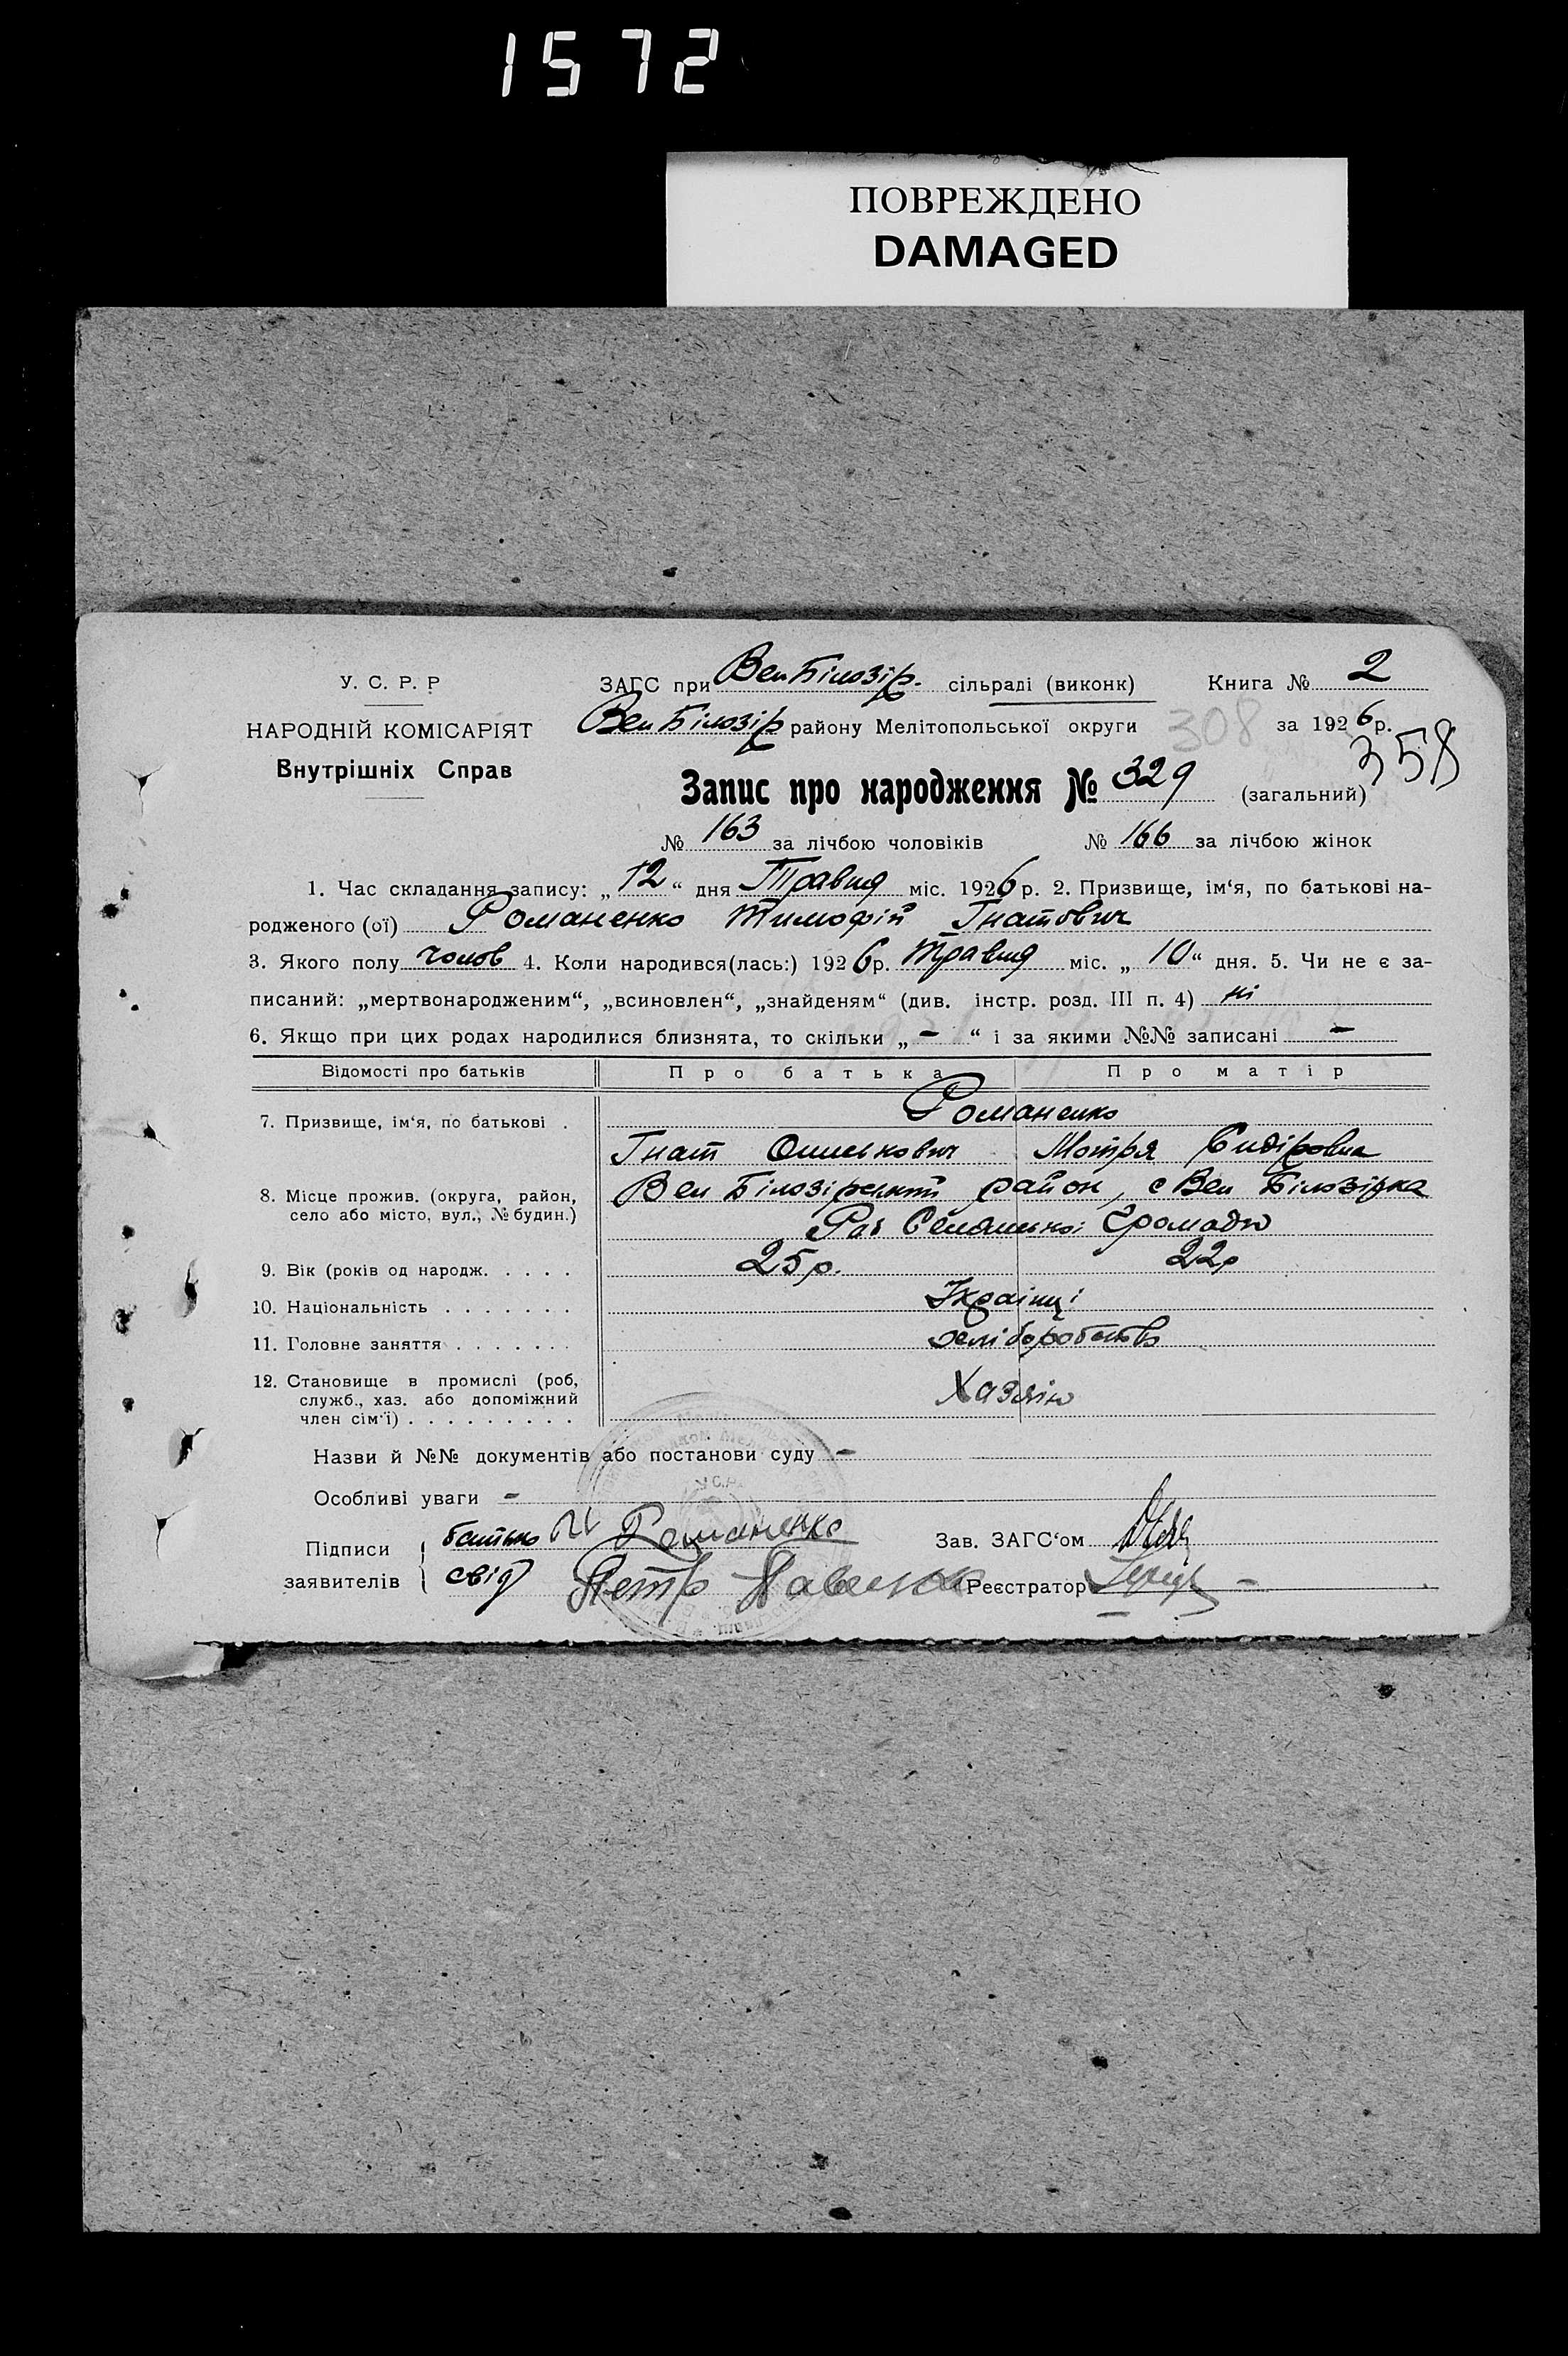 1572
ПОВРЕЖДЕНО
DAMAGED
У. С. Р. Р
НАРОДНІЙ КОМІСАРІЯТ
Внутрішніх Справ
ЗАГС при Вел Білозір. сільраді (виконк) Книга № 2
Вел Білозір району Мелітопольської округи 308 за 1926 р.
358
Запис про народження № 329 (загальний)
№ 163 за лічбою чоловіків № 166 за лічбою жінок
1. Час складання запису: „12“ дня Травня міс. 1926 р. 2. Призвище, ім‘я, по батькові на-
родженого (ої) Романенко Тимофій Гнатович
3. Якого полу чолов 4. Коли народився(лась:) 1926 р. Травня міс. „10“ дня. 5. Чи не є за-
писаний: „мертвонародженим“, „всиновлен“, „знайденям“ (див. інстр. розд. III п. 4) ні
6. Якщо при цих родах народилися близнята, то скільки „ - “ і за якими №№ записані -
Відомості про батьків Про батька Про матір
7. Призвище, ім‘я, по батькові . Романенко
Гнат Мотря Сидіровна
8. Місце прожив. (округа, район,
село або місто, вул., № будин.)
Вел Білозірський район, с Вел Білозірка
Селянської Громади
9. Вік (років од народж. . . . . 25 р. 22 р
10. Національність . . . . . . . Українці
11. Головне заняття . . . . . . . хліборобство
12. Становище в промислі (роб,
служб., хаз. або допоміжний
член сім‘ї) . . . . . . . . . Хазяїн
Назви й №№ документів або постанови суду -
Особливі уваги -
Підписи
заявителів
батько Романенко
свід Петр
Зав. ЗАГС‘ом
Реєстратор